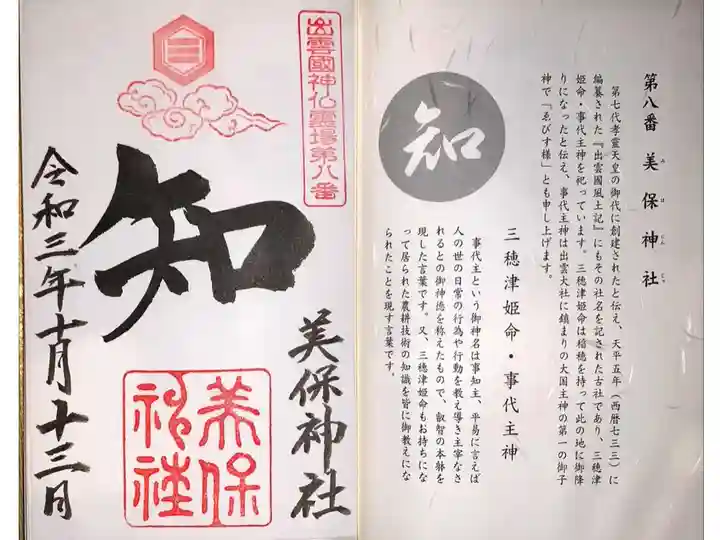 第八番 美保神社
み ほ じんじゃ
第七代孝霊天皇の御代に創建されたと伝え、天平五年(西暦七三三)に
編纂された『出雲國風土記』にもその社名を記された古社であり、三穂津
姫命・事代主神を祀っています。三穂津姫命は稲穂を持って此の地に御降
りになったと伝え、事代主神は出雲大社に鎮まりの大国主神の第一の御子
神で「ゑびす様」とも申し上げます。
三穂津姫命・事代主神
知
事代主という御神名は事知主、平易に言えば
人の世の日常の行為や行動を教え導き主宰なさ
れるとの御神徳を称えたもので、叡智の本躰を
現した言葉です。又、三穂津姫命もお持ちにな
って居られた農耕技術の知識を皆に御教えにな
られたことを現す言葉です。
出雲國神仏霊場第八番
三
知
美保神社
美保
神社
令和三年十月十三日